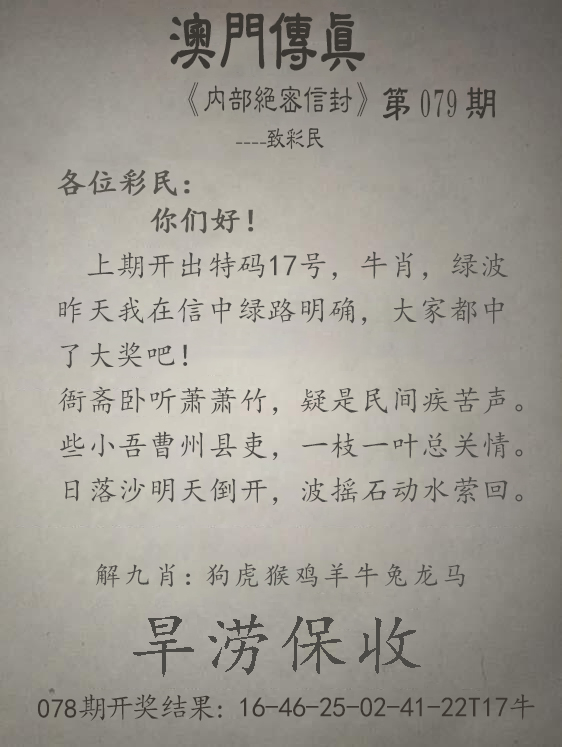 澳門傳眞
《内部絕密信封》第079期
----致彩民
各位彩民：
你们好！
上期开出特码17号，牛肖，绿波
昨天我在信中绿路明确，大家都中
了大奖吧！
衙斋卧听萧萧竹，疑是民间疾苦声。
些小吾曹州县吏，一枝一叶总关情。
日落沙明天倒开，波摇石动水萦回。
解九肖：狗虎猴鸡羊牛兔龙马
旱涝保收
078期开奖结果：16-46-25-02-41-22T17牛